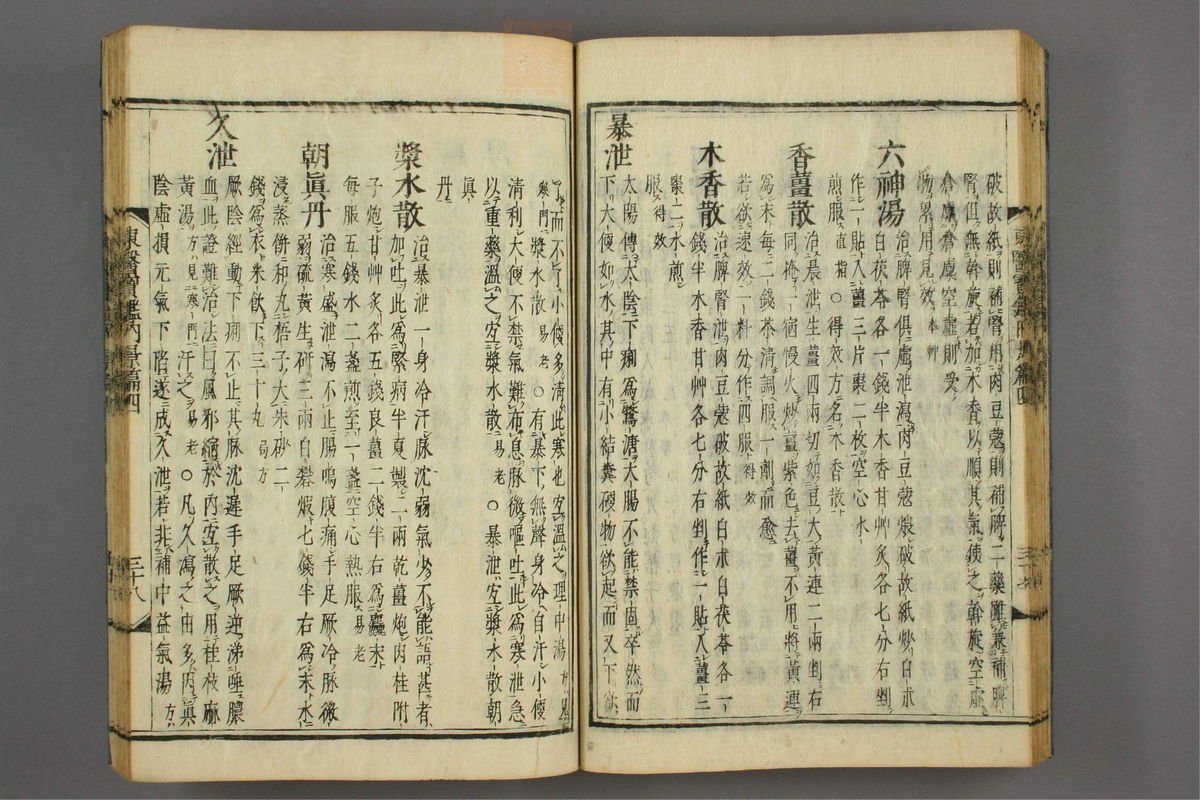 破故紙則補腎用肉豆蔲則補脾二藥雖兼補脾
腎但無斡旋若加木香以順其氣使之斡旋空虛
倉廩倉廩空虛則受
物累用見效 本草
六神湯
治脾腎俱虛泄瀉肉豆蔲煨破故紙炒白朮
白茯苓各一錢半木香甘艸炙各七分右剉
作一貼入薑三片棗二枚空心水
煎服 直指 ○得效方名木香散
香薑散
治晨泄生薑四兩切如豆大黃連二兩剉右
同淹一宿慢火炒薑紫色去薑不用將黃連
爲末每二錢茶淸調服一劑而愈
若欲速效一料分作四服 得效
木香散
治脾腎泄肉豆蔲破故紙白朮白茯苓各一
錢半木香甘艸各七分右剉作一貼入薑三
棗二水煎
服 得效
暴泄
太陽傳太陰下痢爲鶩溏大腸不能禁固卒然而
下大便如水其中有小結糞硬物欲起而又下欲
了而不了小便多淸此寒也宜溫之理中湯 方見
寒門 漿水散 易老 ○有暴下無聲身冷自汗小便
淸利大便不禁氣難布息脉微嘔吐此爲寒泄急
以重藥溫之宜漿水散 易老 ○暴泄宜漿水散朝
眞
丹
漿水散
治暴泄一身冷汗脉沈弱氣少不能語甚者
加吐此爲緊病半夏製二兩乾薑炮肉桂附
子炮甘艸炙各五錢良薑二錢半右爲麤末
每服五錢水二盞煎至一盞空心熱服 易老
朝眞丹
治寒盛泄瀉不止腸鳴腹痛手足厥冷脉微
弱硫黃生硏三兩白礬煆七錢半右爲末水
浸蒸餠和丸梧子大朱砂二
錢爲衣米飮下三十丸 局方
久泄
厥陰經動下痢不止其脉沈遲手足厥逆涕唾膿
血此證難治法曰風邪縮於內宜散之用桂枝麻
黃湯 方見寒門 汗之 易老 ○凡久瀉之由多因眞
陰虛損元氣下陷遂成久泄若非補中益氣湯 方
東醫寶鑑內景篇四
三十八